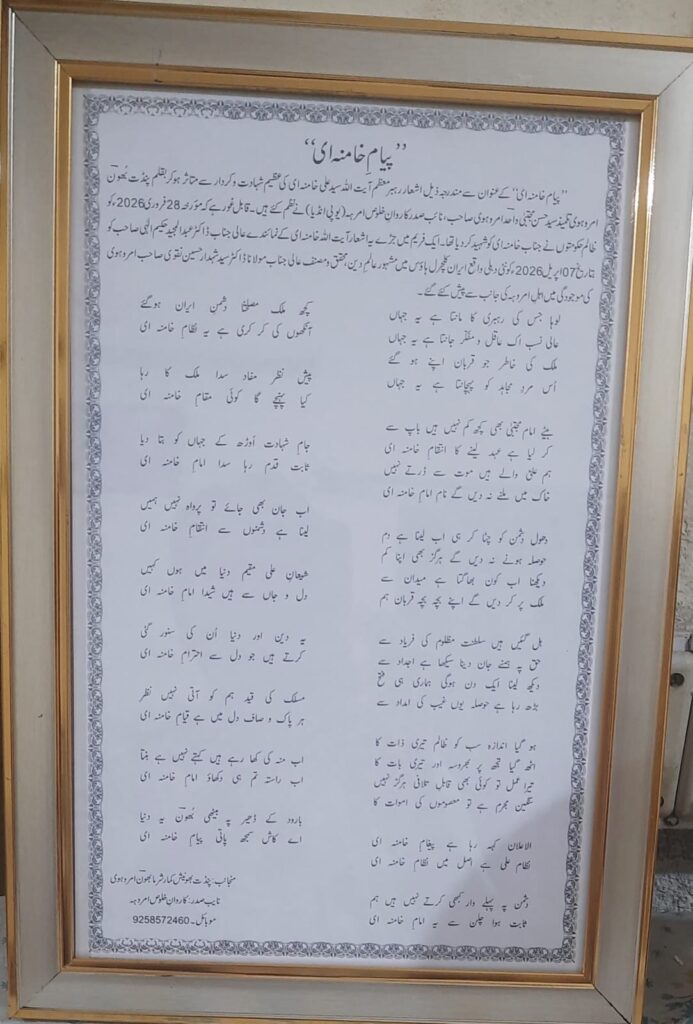 ”پیامِ خامنہ ای“
”پیام خامنہ ای“ کے عنوان سے مندرجہ ذیل اشعار رہبر معظم آیت اللہ سید علی خامنہ ای کی عظیم شہادت و کردار سے متاثر ہوکر بقلم پنڈت بھونؔ
امروہوی تلمیذ سید حسن مجتبیٰ واحدؔ امروہوی صاحب، نائب صدر کاروانِ خلوص امروہہ (یو پی انڈیا) نے نظم کئے ہیں۔ قابل غور ہے کہ مورخہ 28 فروری 2026ء کو
ظالم حکومتوں نے جناب خامنہ ای کو شہید کردیا تھا۔ ایک فریم میں جڑے یہ اشعار آیت اللہ خامنہ ای کے نمائندے عالی جناب ڈاکٹر عبدالمجید حکیم الٰہی صاحب کو
بتاریخ 07 اپریل 2026ء کو نئی دہلی واقع ایران کلچرل ہاؤس میں مشہور عالمِ دین، محقق و مصنف عالی جناب مولانا ڈاکٹر سید شہوار حسین نقوی صاحب امروہوی
کی موجودگی میں اہلِ امروہہ کی جانب سے پیش کئے گئے۔
لوہا جس کی رہبری کا مانتا ہے یہ جہاں
عالی نسب اک عاقل و مفکّر جانتا ہے یہ جہاں
ملک کی خاطر جو قربان اپنے ہو گئے
اُس مردِ مجاہد کو پہچانتا ہے یہ جہاں
بیٹے امام مجتبیٰ بھی کچھ کم نہیں ہیں باپ سے
کر لیا ہے عہد لینے کا انتقام خامنہ ای
ہم علیؑ والے ہیں موت سے ڈرتے نہیں
خاک میں ملنے نہ دیں گے نام امام خامنہ ای
دھول دشمن کو چٹا کر ہی اب لینا ہے دم
حوصلہ ہونے نہ دیں گے ہرگز بھی اپنا کم
دیکھنا اب کون بھاگتا ہے میدان سے
ملک پر کر دیں گے اپنے بچہ بچہ قربان ہم
ہل گئیں ہیں سلطنت مظلوم کی فریاد سے
حق پہ ہمنے جان دینا سیکھا ہے اجداد سے
دیکھ لینا ایک دن ہوگی ہماری ہی فتح
بڑھ رہا ہے حوصلہ یوں غیب کی امداد سے
ہو گیا اندازہ سب کو ظالم تیری ذات کا
اٹھ گیا تجھ پر بھروسہ اور تیری بات کا
تیرا عمل تو کوئی بھی قابلِ تلافی ہرگز نہیں
سنگین مجرم ہے تو معصوموں کی اموات کا
الاعلان کہہ رہا ہے پیغامِ خامنہ ای
نظام علی ہے اصل میں نظام خامنہ ای
دشمن پہ پہلے وار کبھی کرتے نہیں ہیں ہم
ثابت ہوا چلن سے یہ امام خامنہ ای
کچھ ملک مصلحتاً دشمنِ ایران ہوگئے
آنکھوں کی کر کری ہے یہ نظام خامنہ ای
پیش نظر مفاد سدا ملک کا رہا
کیا پہنچے گا کوئی مقام خامنہ ای
جامِ شہادت اُوڑھ کے جہاں کو بتا دیا
ثابت قدم رہا سدا امام خامنہ ای
اب جان بھی جائے تو پرواہ نہیں ہمیں
لینا ہے دشمنوں سے انتقام خامنہ ای
شیعانِ علی مقیم دنیا میں ہوں کہیں
دل و جاں سے ہیں شیدا امام خامنہ ای
یہ دین اور دنیا اُن کی سنور گئی
کرتے ہیں جو دل سے احترام خامنہ ای
مسلک کی قید ہم کو آتی نہیں نظر
ہر پاک و صاف دل میں ہے قیام خامنہ ای
اب منہ کی کھا رہے ہیں کہتے نہیں ہے بنتا
اب راستہ تم ہی دکھاؤ امام خامنہ ای
بارود کے ڈھیر پہ بیٹھی بھونؔ یہ دنیا
اے کاش سمجھ پاتی پیام خامنہ ای
منجانب: پنڈت بھونیش کمار شرما بھونؔ امروہوی
نایب صدر: کاروانِ خلوص امروہہ
موبائل۔ 9258572460